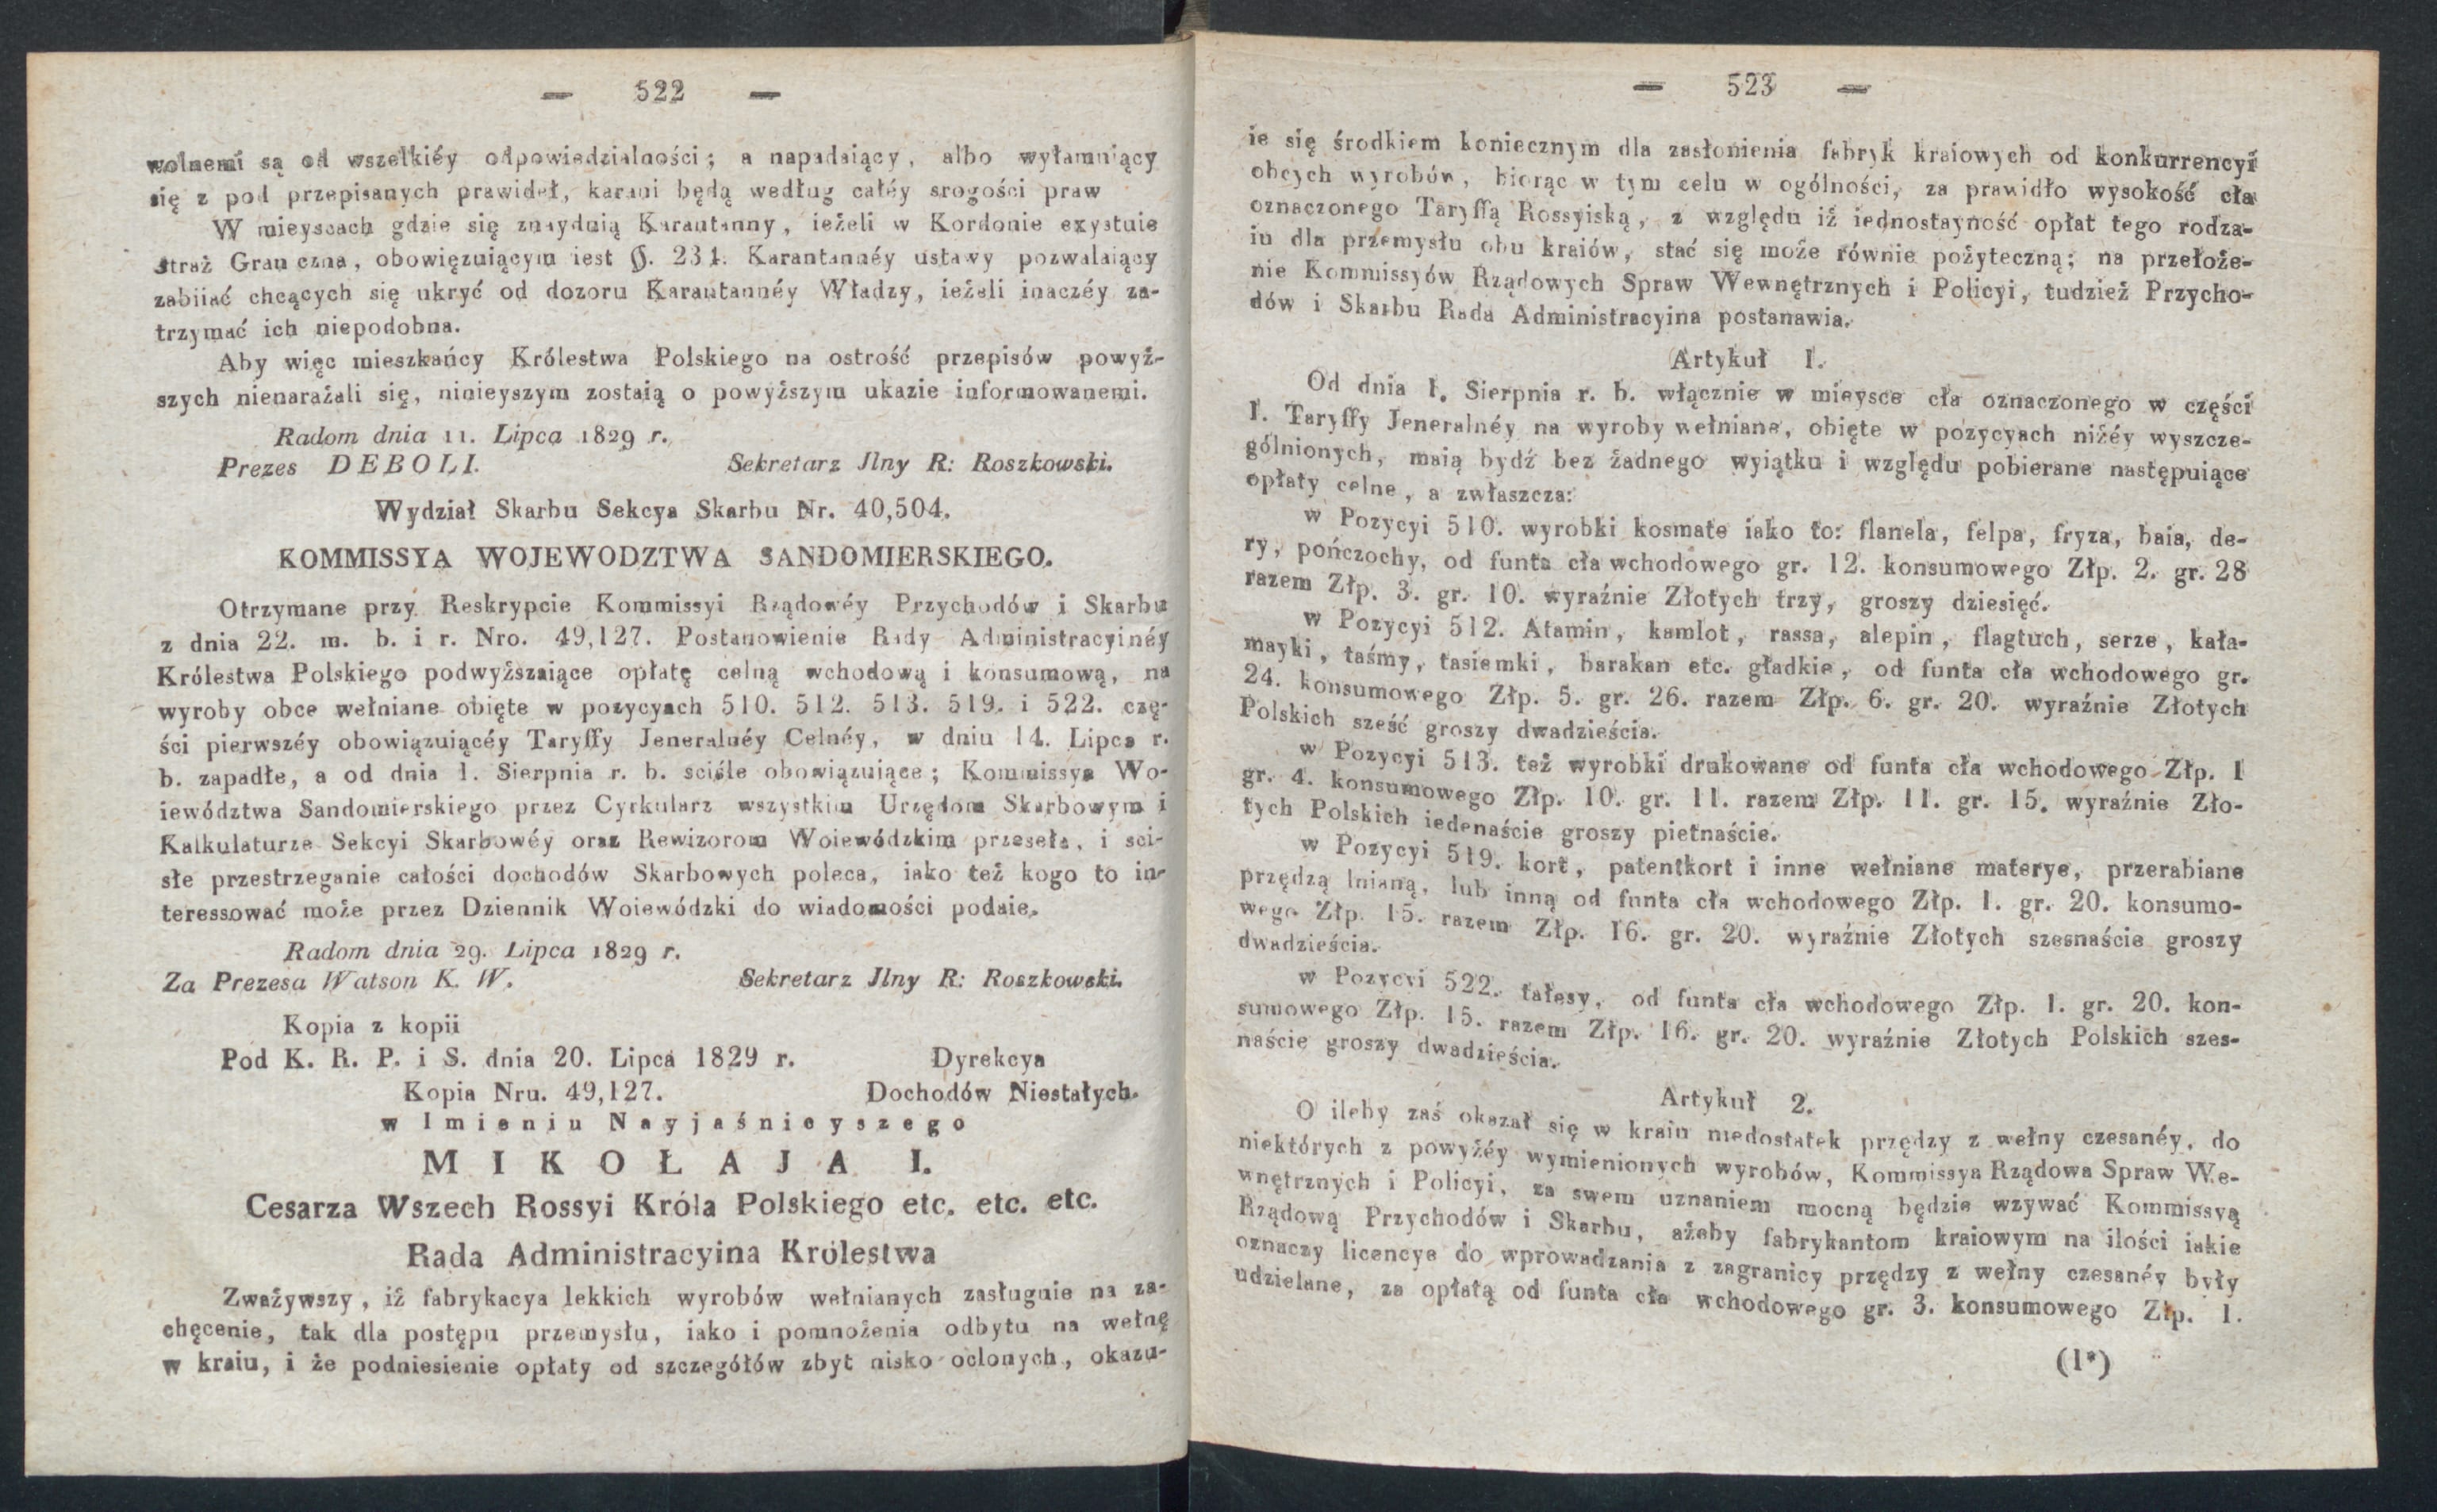 — 522 —
wolnemi są od wszelkiéy odpowiedzialności; a napadaiący, albo wyłamuiący
się z pod przepisanych prawideł, karani będą według całéy srogości praw
W mieyscach gdzie się znayduią Karantanny, ieżeli w Kordonie exystuie
straż Gran czna, obowięzuiącym iest §. 231. Karantannéy ustawy pozwalaiący
zabiiać chcących się ukryć od dozoru Karantannéy Władzy, ieżeli inaczéy za-
trzymać ich niepodobna.
Aby więc mieszkańcy Królestwa Polskiego na ostrość przepisów powyż-
szych nienarażali się, ninieyszym zostaią o powyższym ukazie informowanemi.
Radom dnia 11. Lipca 1829 r.
Prezes DEBOLI. Sekretarz Jlny R: Roszkowski.
Wydział Skarbu Sekcya Skarbu Nr. 40,504.
KOMMISSYA WOJEWODZTWA SANDOMIERSKIEGO.
Otrzymane przy Reskrypcie Kommissyi Rządowéy Przychodów i Skarbu
z dnia 22. m. b. i r. Nro. 49,127. Postanowienie Rady Administracyinéy
Królestwa Polskiego podwyższaiące opłatę celną wchodową i konsumową, na
wyroby obce wełniane obięte w pozycyach 510. 512. 513. 519. i 522. czę-
ści pierwszéy obowiązuiącéy Taryffy Jeneralnéy Celnéy, w dniu 14. Lipca r.
b. zapadłe, a od dnia 1. Sierpnia r. b. sciśle obowiązuiące; Kommissya Wo-
iewództwa Sandomierskiego przez Cyrkularz wszystkim Urzędom Skarbowym i
Kalkulaturze Sekcyi Skarbowéy oraz Rewizorom Woiewódzkim przeseła, i sci-
słe przestrzeganie całości dochodów Skarbowych poleca, iako też kogo to in-
teressować może przez Dziennik Woiewódzki do wiadomości podaie.
Radom dnia 29. Lipca 1829 r.
Za Prezesa Watson K. W. Sekretarz Jlny R: Roszkowski.
Kopia z kopii
Pod K. R. P. i S. dnia 20. Lipca 1829 r. Dyrekcya
Kopia Nru. 49,127. Dochodów Niestałych.
w Imieniu Nayjaśnieyszego
MIKOŁAJA I.
Cesarza Wszech Rossyi Króla Polskiego etc. etc. etc.
Rada Administracyina Królestwa
Zważywszy, iż fabrykacya lekkich wyrobów wełnianych zasługuie na za-
chęcenie, tak dla postępu przemysłu, iako i pomnożenia odbytu na wełnę
w kraiu, i że podniesienie opłaty od szczegółów zbyt nisko oclonych, okazu-
— 523 —
ie się środkiem koniecznym dla zasłonienia fabryk kraiowych od konkurrencyi
obcych wyrobów, biorąc w tym celu w ogólności, za prawidło wysokość cła
oznaczonego Taryffą Rossyiską, z względu iż iednostayność opłat tego rodza-
iu dla przemysłu obu kraiów, stać się może równie pożyteczną; na przełoże-
nie Kommissyów Rządowych Spraw Wewnętrznych i Policyi, tudzież Przycho-
dów i Skarbu Rada Administracyina postanawia.
Artykuł 1.
Od dnia 1. Sierpnia r. b. włącznie w mieysce cła oznaczonego w części
I. Taryffy Jeneralnéy na wyroby wełniane, obięte w pozycyach niżéy wyszcze-
gólnionych, maią bydź bez żadnego wyiątku i względu pobierane następuiące
opłaty celne, a zwłaszcza:
w Pozycyi 510. wyrobki kosmate iako to: flanela, felpa, fryza, baia, de-
ry, pończochy, od funta cła wchodowego gr. 12. konsumowego Złp. 2. gr. 28
razem Złp. 3. gr. 10. wyraźnie Złotych trzy, groszy dziesięć.
w Pozycyi 512. Atamin, kamlot, rassa, alepin, flagtuch, serze, kała-
mayki, taśmy, tasiemki, barakan etc. gładkie, od funta cła wchodowego gr.
24. konsumowego Złp. 5. gr. 26. razem Złp. 6. gr. 20. wyraźnie Złotych
Polskich sześć groszy dwadzieścia.
w Pozycyi 513. też wyrobki drukowane od funta cła wchodowego Złp. 1
gr. 4. konsumowego Złp. 10. gr. 11. razem Złp. 11. gr. 15. wyraźnie Zło-
tych Polskich iedenaście groszy pietnaście.
w Pozycyi 519. kort, patentkort i inne wełniane materye, przerabiane
przędzą lnianą, lub inną od funta cła wchodowego Złp. 1. gr. 20. konsumo-
wego Złp. 15. razem Złp. 16. gr. 20. wyraźnie Złotych szesnaście groszy
dwadzieścia.
w Pozycyi 522. tałesy, od funta cła wchodowego Złp. 1. gr. 20. kon-
sumowego Złp. 15. razem Złp. 16. gr. 20. wyraźnie Złotych Polskich szes-
naście groszy dwadzieścia.
Artykuł 2.
O ileby zaś okazał się w kraiu niedostatek przędzy z wełny czesanéy, do
niektórych z powyżéy wymienionych wyrobów, Kommissya Rządowa Spraw We-
wnętrznych i Policyi, za swem uznaniem mocną będzie wzywać Kommissyą
Rządową Przychodów i Skarbu, ażeby fabrykantom kraiowym na ilości iakie
oznaczy licencye do wprowadzania z zagranicy przędzy z wełny czesanéy były
udzielane, za opłatą od funta cła wchodowego gr. 3. konsumowego Złp. 1.
(1*)